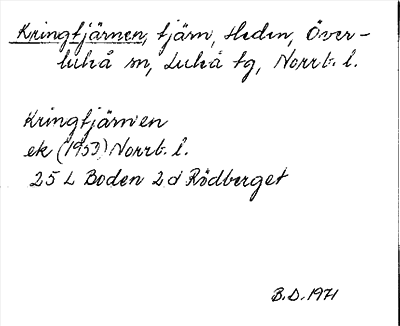 Kringtjärnen, tjärn, Heden, Över-
luleå sn, Luleå tg, Norrb. l.
Kringtjärnen
ek (1953) Norrb. l.
25 L Boden 2d Rödberget
B.D. 1971